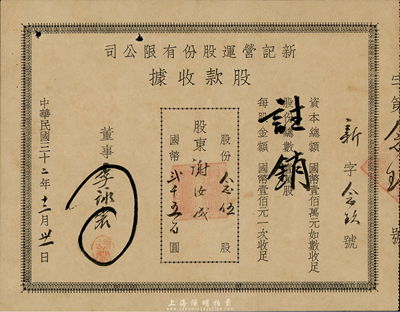 新記營運股份有限公司
股款收據
新字 號
資本總額 國幣壹佰萬元如數收足
股份總數
每股金額 國幣壹佰元一次收足
註銷
股份 伍 股
股東 謝汝成
國幣 貳千五百 圓
董事
中華民國三十二年十二月卅一日
上海陽明拍賣